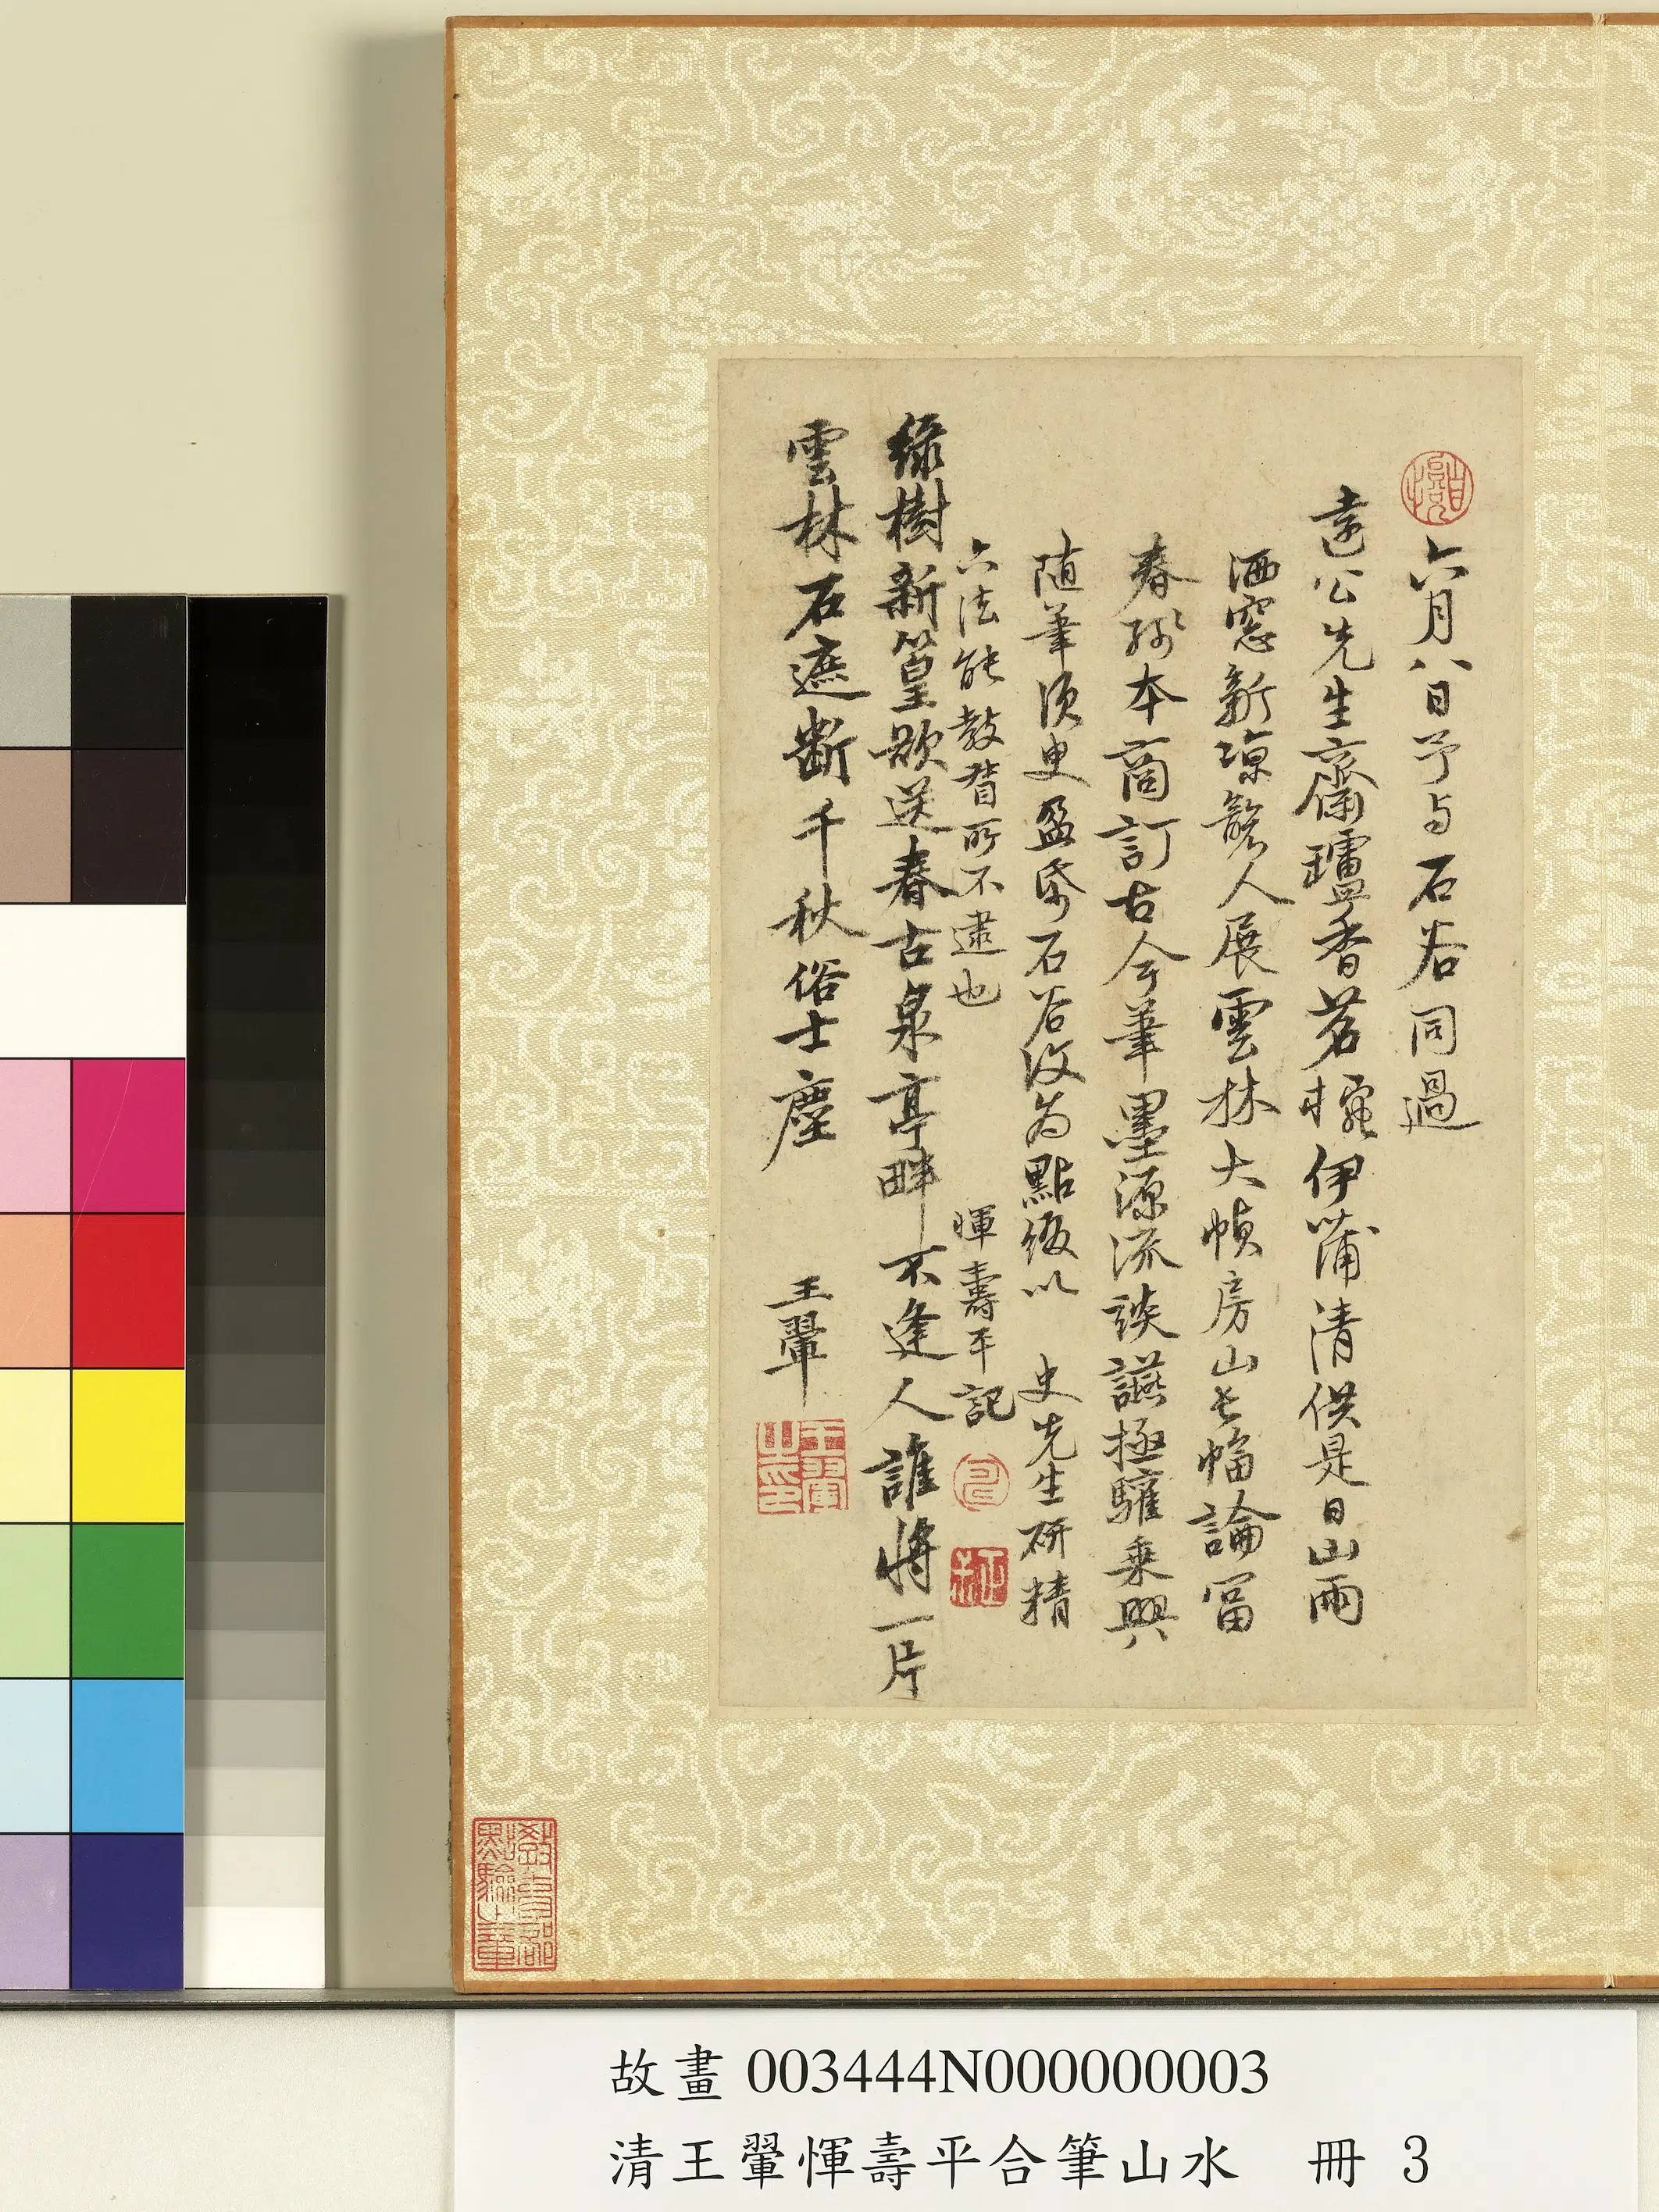 六月八日予与石谷同過
遠公先生齋罏香茗椀伊蒲清供是日山雨
洒窓新涼襲人展雲林大幀房山長幅論富
春殘本商訂古今筆墨源流談讌極驩乗興
随筆須臾盈帋石谷汝为點綴以 史先生研精
六法能教督所不逮也 惲壽平記
綠樹新篁欲送春古泉亭畔不逢人誰將一片
雲林石遮斷千秋俗士塵 王翬
王翬之印
教育部點驗之章
故畫 003444N000000003
清王翬惲壽平合筆山水 冊 3